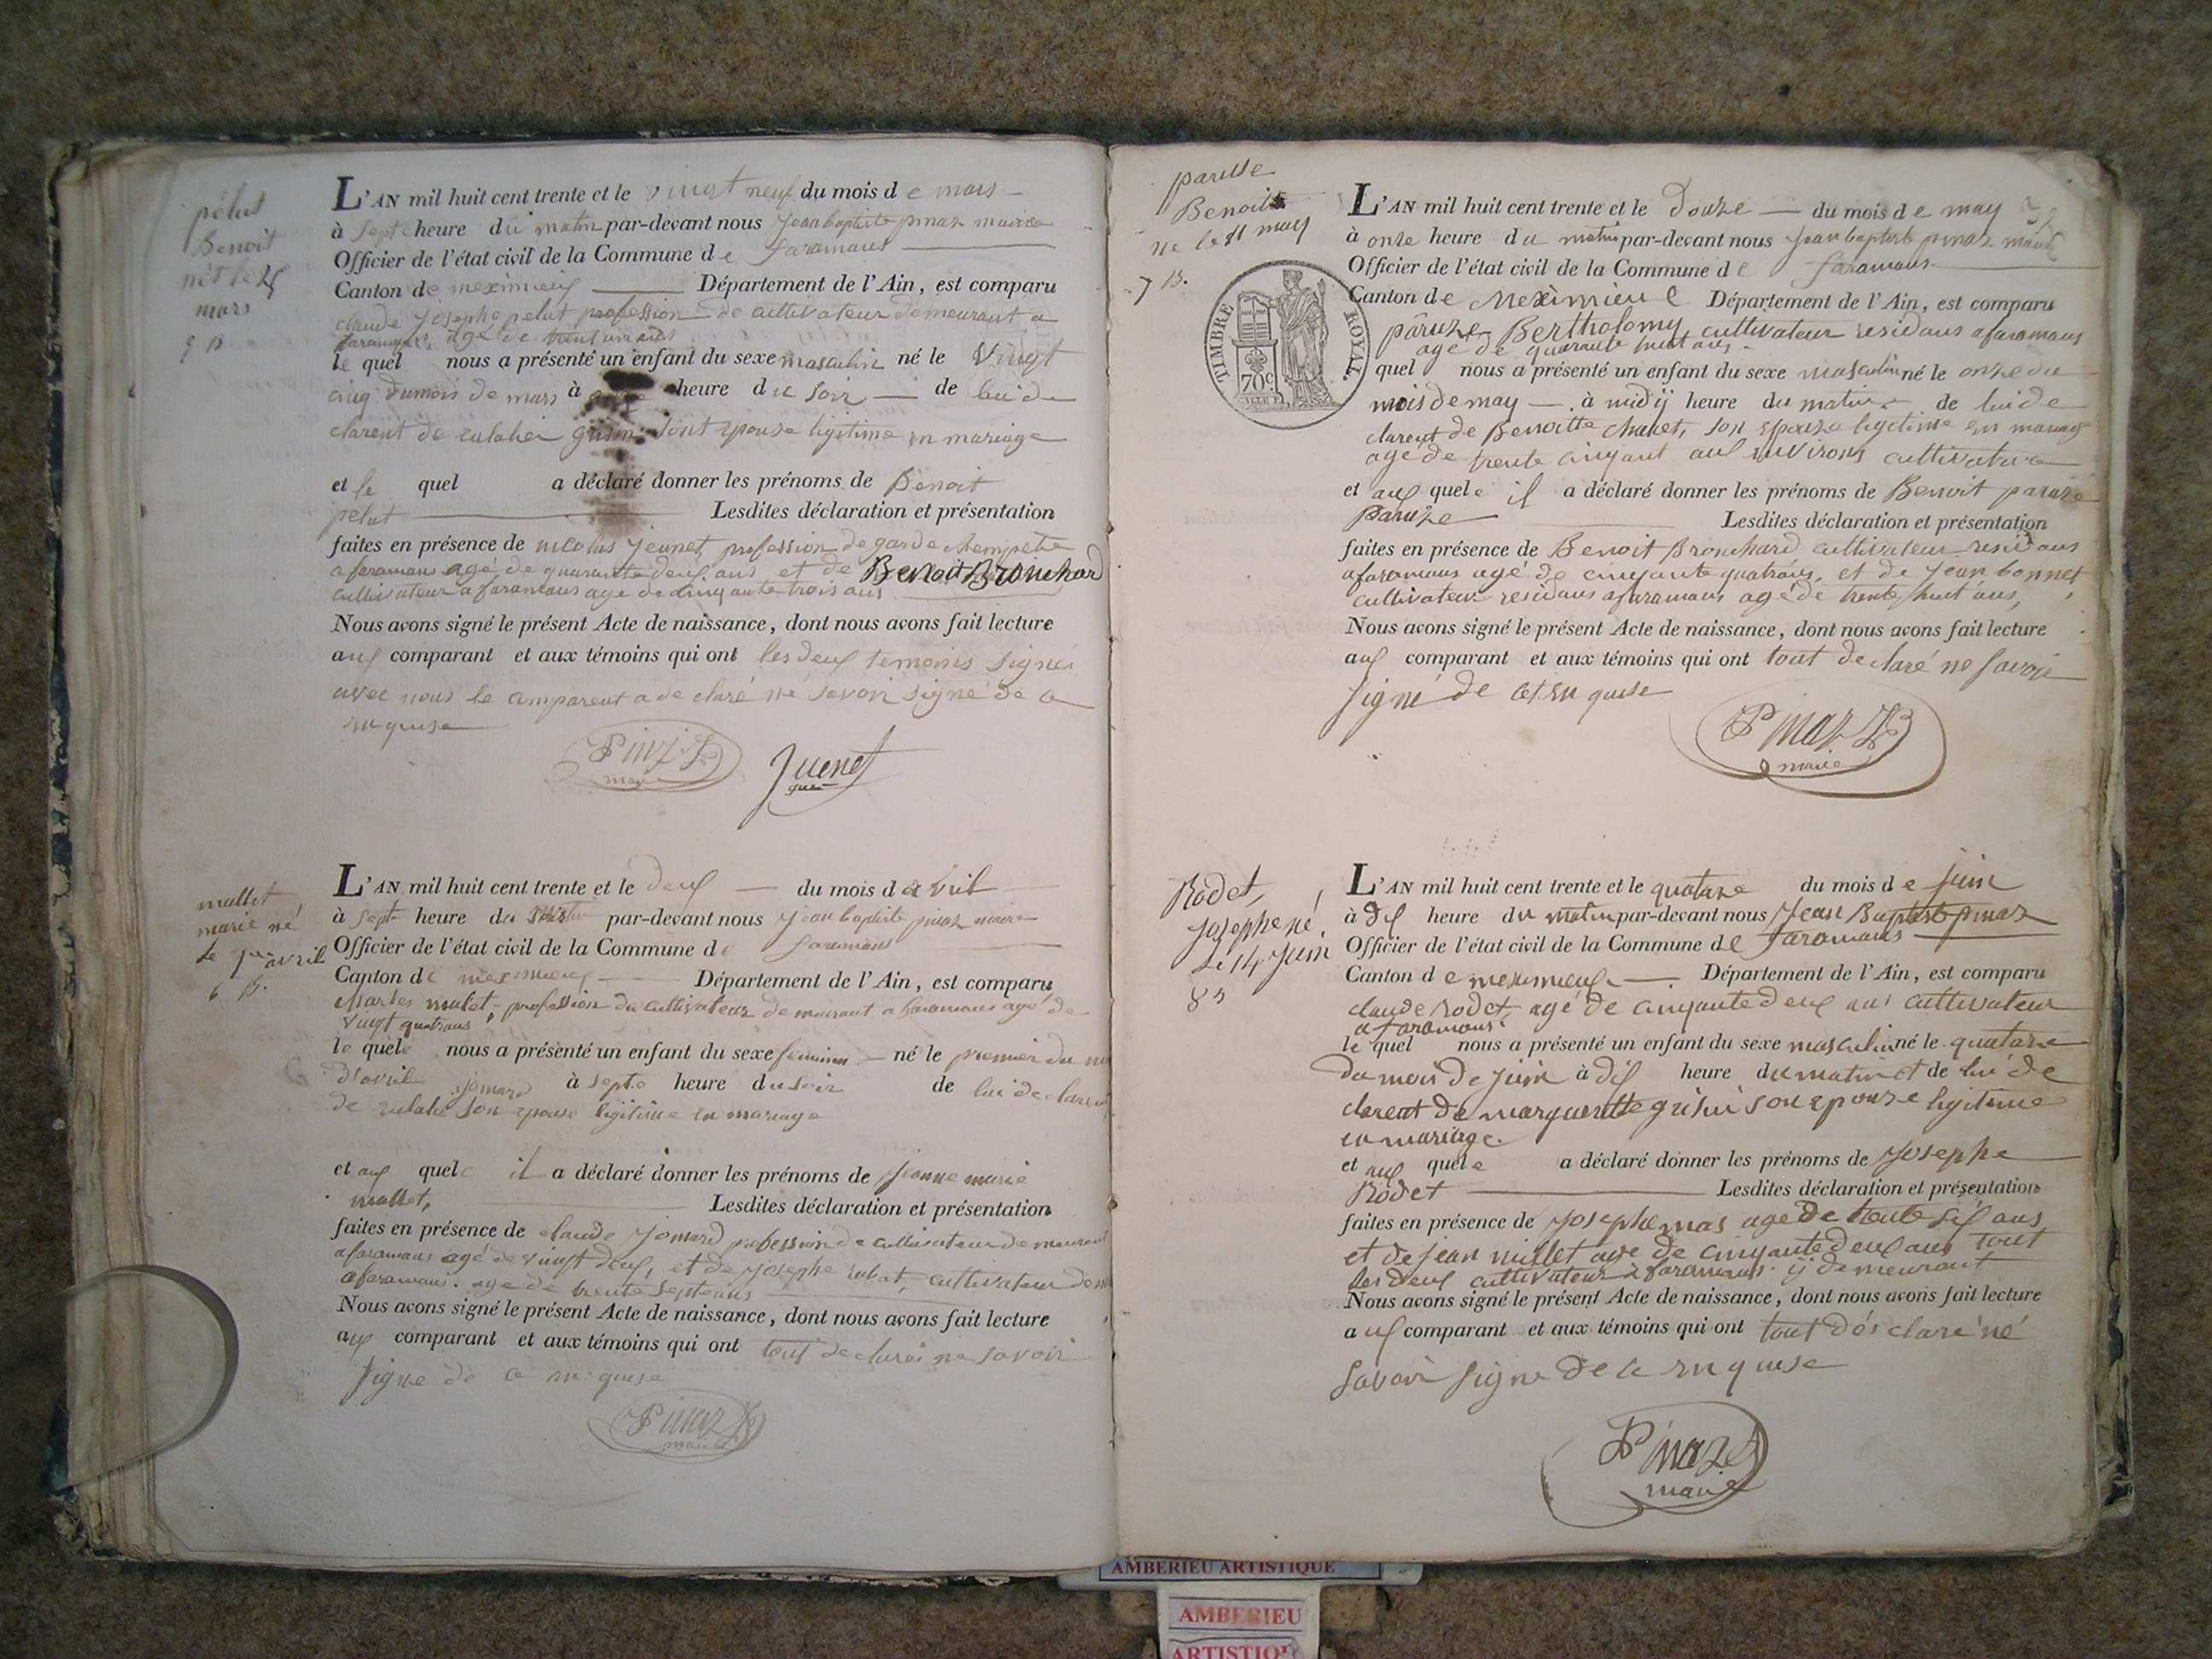 pélut
Benoit
né le 25
mars
5 B
L'AN mil huit cent trente et le vingt neuf du mois de mars
à Sept heure du matin par-devant nous Jean baptiste pinaz maire
Officier de l'état civil de la Commune de faramans
Canton de meximieux Département de l'Ain, est comparu
claude Josephe pelut profession de cultivateur demeurant a
faramans, agé de trent un ans
le quel nous a présenté un enfant du sexe masculin né le vingt
cinq du mois de mars à heure du soir de lui de
clarent de eulalie grisin sont epouse ligitime en mariage
et le quel a déclaré donner les prénoms de Benoit
pelut Lesdites déclaration et présentation
faites en présence de nicolas Jeunet profession de garde chempetre
a faramans agé de quarante deux ans et de Benoit Bronchard
cultivateur a faramans age de cinquante trois ans
Nous avons signé le présent Acte de naissance, dont nous avons fait lecture
aux comparant et aux témoins qui ont les deux temoins signés
avec nous le comparent a de claré ne savoir signé de ce
enquise
Pinaz
maire
Juenet
mallet
marie né
le 1er avril
6 B.
L'AN mil huit cent trente et le deux du mois d avril
à sept heure du par-devant nous Jean baptiste pinaz maire
Officier de l'état civil de la Commune de faramans
Canton de meximieux Département de l'Ain, est comparu
charles malet profession de cultivateur demeurant a faramans agé de
vingt quatrans
le quele nous a présenté un enfant du sexe feminin né le premier du
d'avril à septe heure du soir de lui declarent
Jomard
de eulalie son epouse ligitime en mariage
et aux quele il a déclaré donner les prénoms de jeanne marie
mallet, Lesdites déclaration et présentation
faites en présence de claude Jomard profession de cultivateur demeurant
a faramans agé de vingt deux, et de Josephe cultivateur
a faramans. age de trente septe ans
Nous avons signé le présent Acte de naissance, dont nous avons fait lecture
aux comparant et aux témoins qui ont tout declarés ne savoir
signe de ce en quise
Pinaz
maire
paruse
Benoit
né le 11 may
7 B.
TIMBRE ROYAL
70c.
L'AN mil huit cent trente et le Douze du mois de may
à onze heure du matin par-devant nous Jean baptiste pinaz maire
Officier de l'état civil de la Commune de faramans
Canton de Meximieux Département de l'Ain, est comparu
paruze Bertholomy, cultivateur residans a faramans
agé de quarante huit ans
quel nous a présenté un enfant du sexe masculin né le onze du
mois de may à midij heure du matin de lui de
clarent de Benoitte chanet, son epouse ligitime en mariage
agé de trente cinqant aux environs cultivatrice
et aux quele il a déclaré donner les prénoms de Benoit paruze
paruze Lesdites déclaration et présentation
faites en présence de Benoit Bronchard cultivateur residans
afaramans agé de cinquante quatrans, et de Jean bonnet
cultivateur residans afaramans agé de trente huit ans,
Nous avons signé le présent Acte de naissance, dont nous avons fait lecture
aux comparant et aux témoins qui ont tout declaré ne savoir
signé de ce en quise
Pinaz
maire
Rodet,
Josephe né
le 14 Juin
8 B
L'AN mil huit cent trente et le quatorze du mois de juin
à dix heure du matin par-devant nous Jean Baptiste pinaz
Officier de l'état civil de la Commune de faramans
Canton de meximieux Département de l'Ain, est comparu
claude Rodet, agé de cinquante deux ans cultivateur
a faramans
le quel nous a présenté un enfant du sexe masculin né le quatorze
du mois de juin à dix heure du matin et de lui de
clarent de margueritte grisin son epouze ligitime
en mariage.
et aux quele a déclaré donner les prénoms de Josephe
Rodet Lesdites déclaration et présentation
faites en présence de Josephe mas age de trente six ans
et de jean millet age de cinquante deux ans tout
les deux cultivateur a faramans ij demeurant
Nous avons signé le présent Acte de naissance, dont nous avons fait lecture
aux comparant et aux témoins qui ont tout dés claré né
savoir signe de ce enquise
Pinaz
maire
AMBERIEU ARTISTIQUE
AMBERIEU
ARTISTIQUE